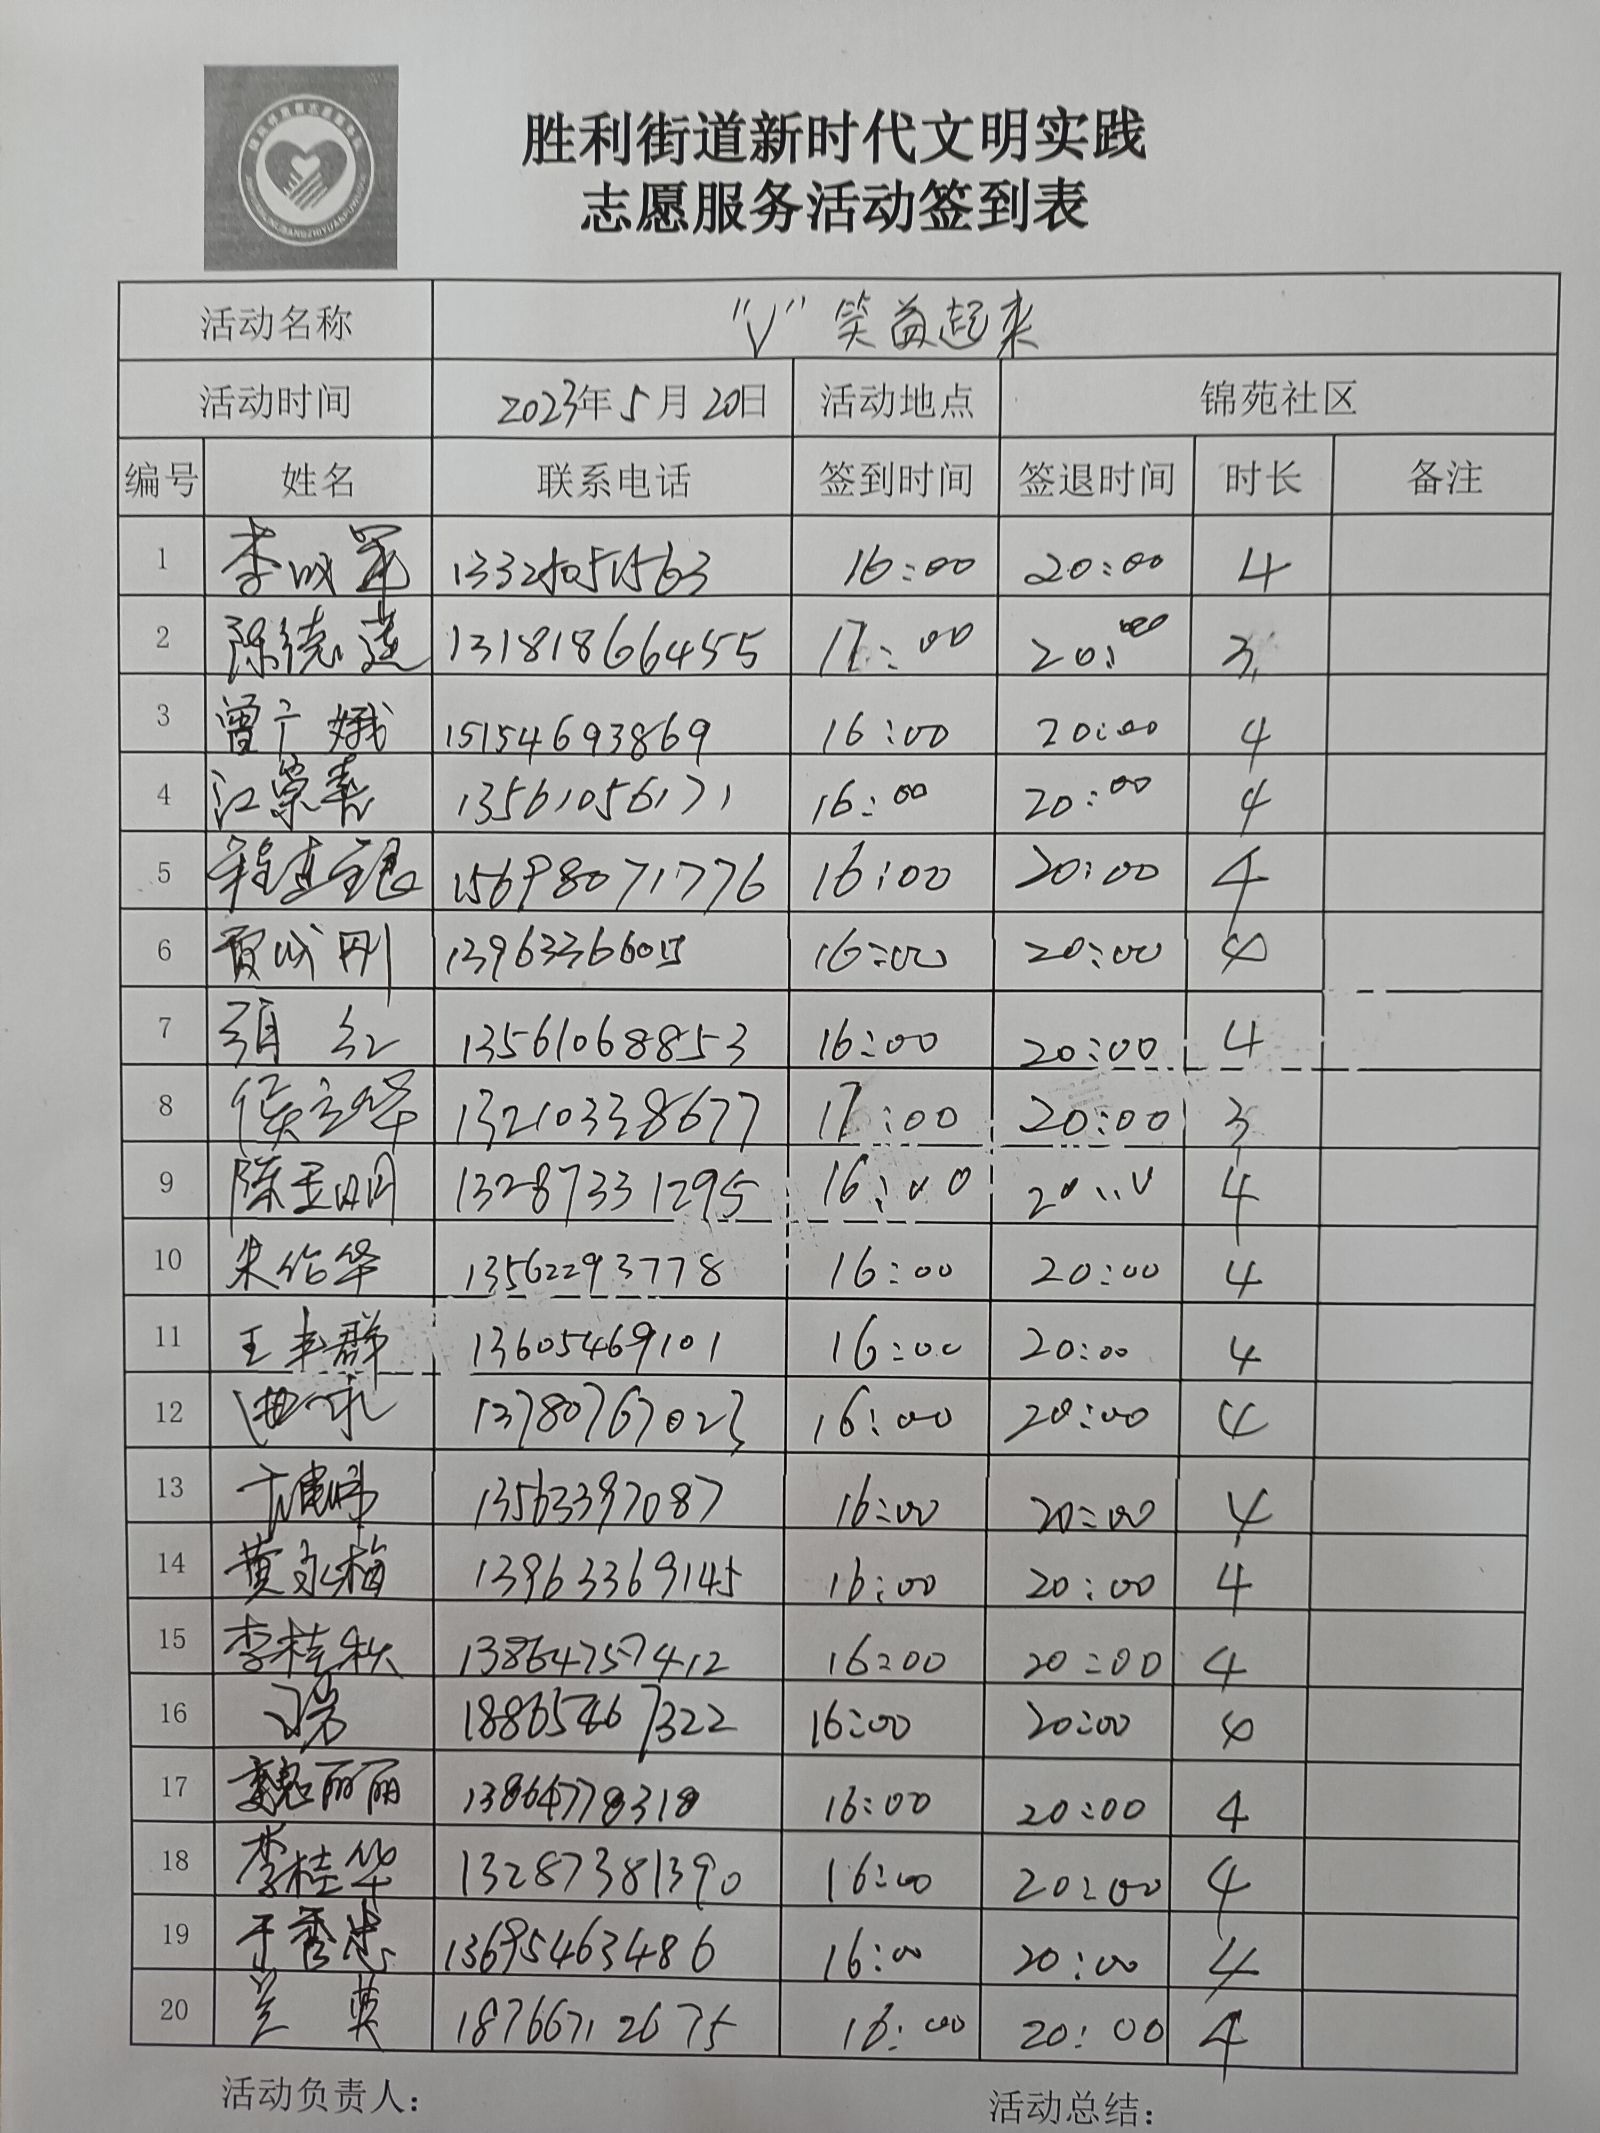 胜利街道新时代文明实践
志愿服务活动签到表
活动名称 “V”笑益起来
活动时间 2023年5月20日 活动地点 锦苑社区
编号 姓名 联系电话 签到时间 签退时间 时长 备注
1 李成军 13325051563 16:00 20:00 4
2 陈德莲 13181866455 17:00 20:00 3
3 曾广娥 15154693869 16:00 20:00 4
4 江荣春 13561056171 16:00 20:00 4
5 15698071776 16:00 20:00 4
6 贾成刚 16:00 20:00 4
7 项红 13561068853 16:00 20:00 4
8 侯立华 13210338677 17:00 20:00 3
9 陈玉明 13287331295 16:00 20:00 4
10 朱伦华 13562293778 16:00 20:00 4
11 王丰群 13605469101 16:00 20:00 4
12 13780767023 16:00 20:00 4
13 13563397087 16:00 20:00 4
14 黄永梅 13963369145 16:00 20:00 4
15 李桂秋 13864757412 16:00 20:00 4
16 18865467322 16:00 20:00 4
17 魏丽丽 13864778318 16:00 20:00 4
18 李桂华 13287381390 16:00 20:00 4
19 于秀忠 13695463486 16:00 20:00 4
20 兰英 18766712675 16:00 20:00 4
活动负责人： 活动总结：